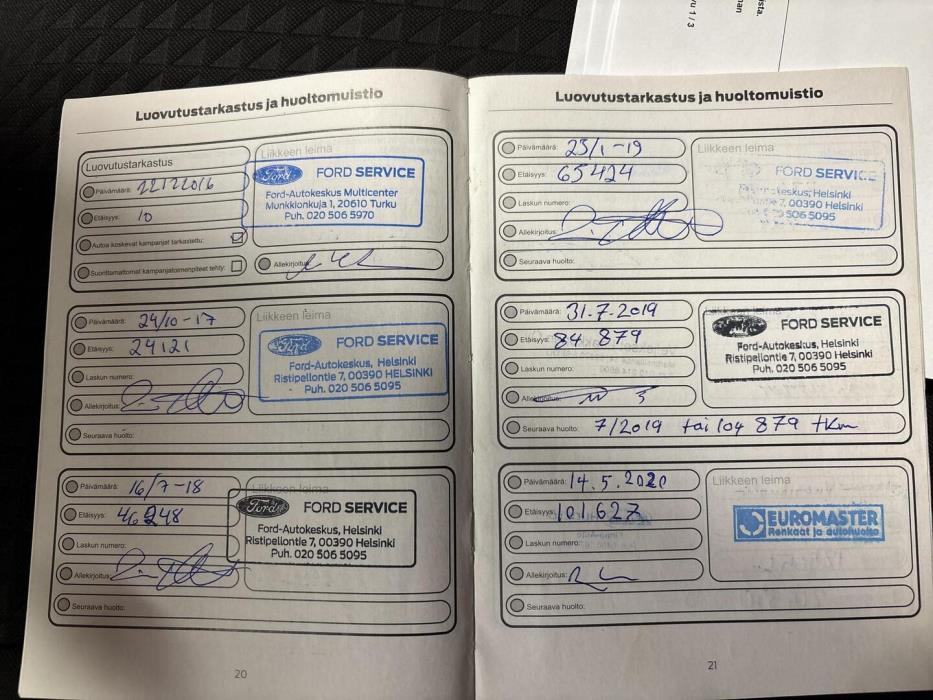 ista.
nan
vu 1 / 3
Luovutustarkastus ja huoltomuistio
Luovutustarkastus
Päivämäärä: 22122016
Etäisyys: 10
Autoa koskevat kampanjat tarkastettu:
Suorittamattomat kampanjatoimenpiteet tehty:
Liikkeen leima
Ford
FORD SERVICE
Ford-Autokeskus Multicenter
Munkkionkuja 1, 20610 Turku
Puh. 020 506 5970
Allekirjoitus:
Päivämäärä: 24/10-17
Etäisyys: 29121
Laskun numero:
Allekirjoitus:
Seuraava huolto:
Liikkeen leima
Ford
FORD SERVICE
Ford-Autokeskus, Helsinki
Ristipellontie 7, 00390 HELSINKI
Puh. 020 506 5095
Päivämäärä: 16/7-18
Etäisyys: 46248
Laskun numero:
Allekirjoitus:
Seuraava huolto:
Liikkeen leima
Ford
FORD SERVICE
Ford-Autokeskus, Helsinki
Ristipellontie 7, 00390 Helsinki
Puh. 020 506 5095
20
Luovutustarkastus ja huoltomuistio
Päivämäärä: 23/1-19
Etäisyys: 65424
Laskun numero:
Allekirjoitus:
Seuraava huolto:
Liikkeen leima
FORD SERVICE
Helsinki
7, 00390 Helsinki
506 5095
Päivämäärä: 31.7.2019
Etäisyys: 84 879
Laskun numero:
Seuraava huolto: 7/2019 tai 104 879 tkm
Ford
FORD SERVICE
Ford-Autokeskus, Helsinki
Ristipellontie 7, 00390 Helsinki
Puh. 020 506 5095
Päivämäärä: 14.5.2020
Etäisyys: 101627
Laskun numero:
Allekirjoitus:
Seuraava huolto:
Liikkeen leima
EUROMASTER
Renkaat ja autohuolto
21